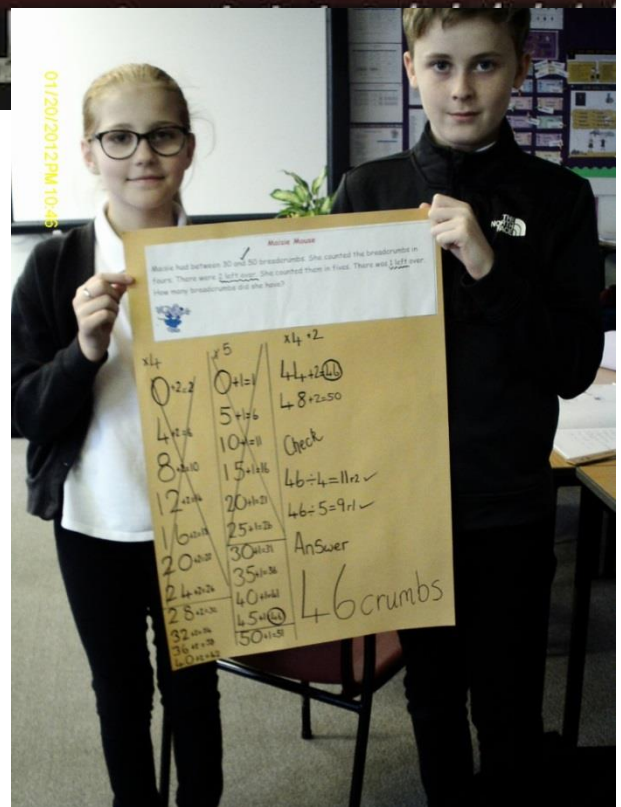 01/20/2012PM 10:46
THE
NORTH
FACE
Maisie Mouse
Maisie had between 30 and 50 breadcrumbs. She counted the breadcrumbs in
fours. There were 2 left over. She counted them in fives. There was 1 left over.
How many breadcrumbs did she have?
x4
0+2=2
4+2=6
8+2=10
12+2=14
16+2=18
20+2=22
24+2=26
28+2=30
32+2=34
36+2=38
40+2=42
x5
0+1=1
5+1=6
10+1=11
15+1=16
20+1=21
25+1=26
30+1=31
35+1=36
40+1=41
45+1=46
50+1=51
x4 +2
44+2=46
48+2=50
Check
46÷4=11r2 ✓
46÷5=9r1 ✓
Answer
46 crumbs